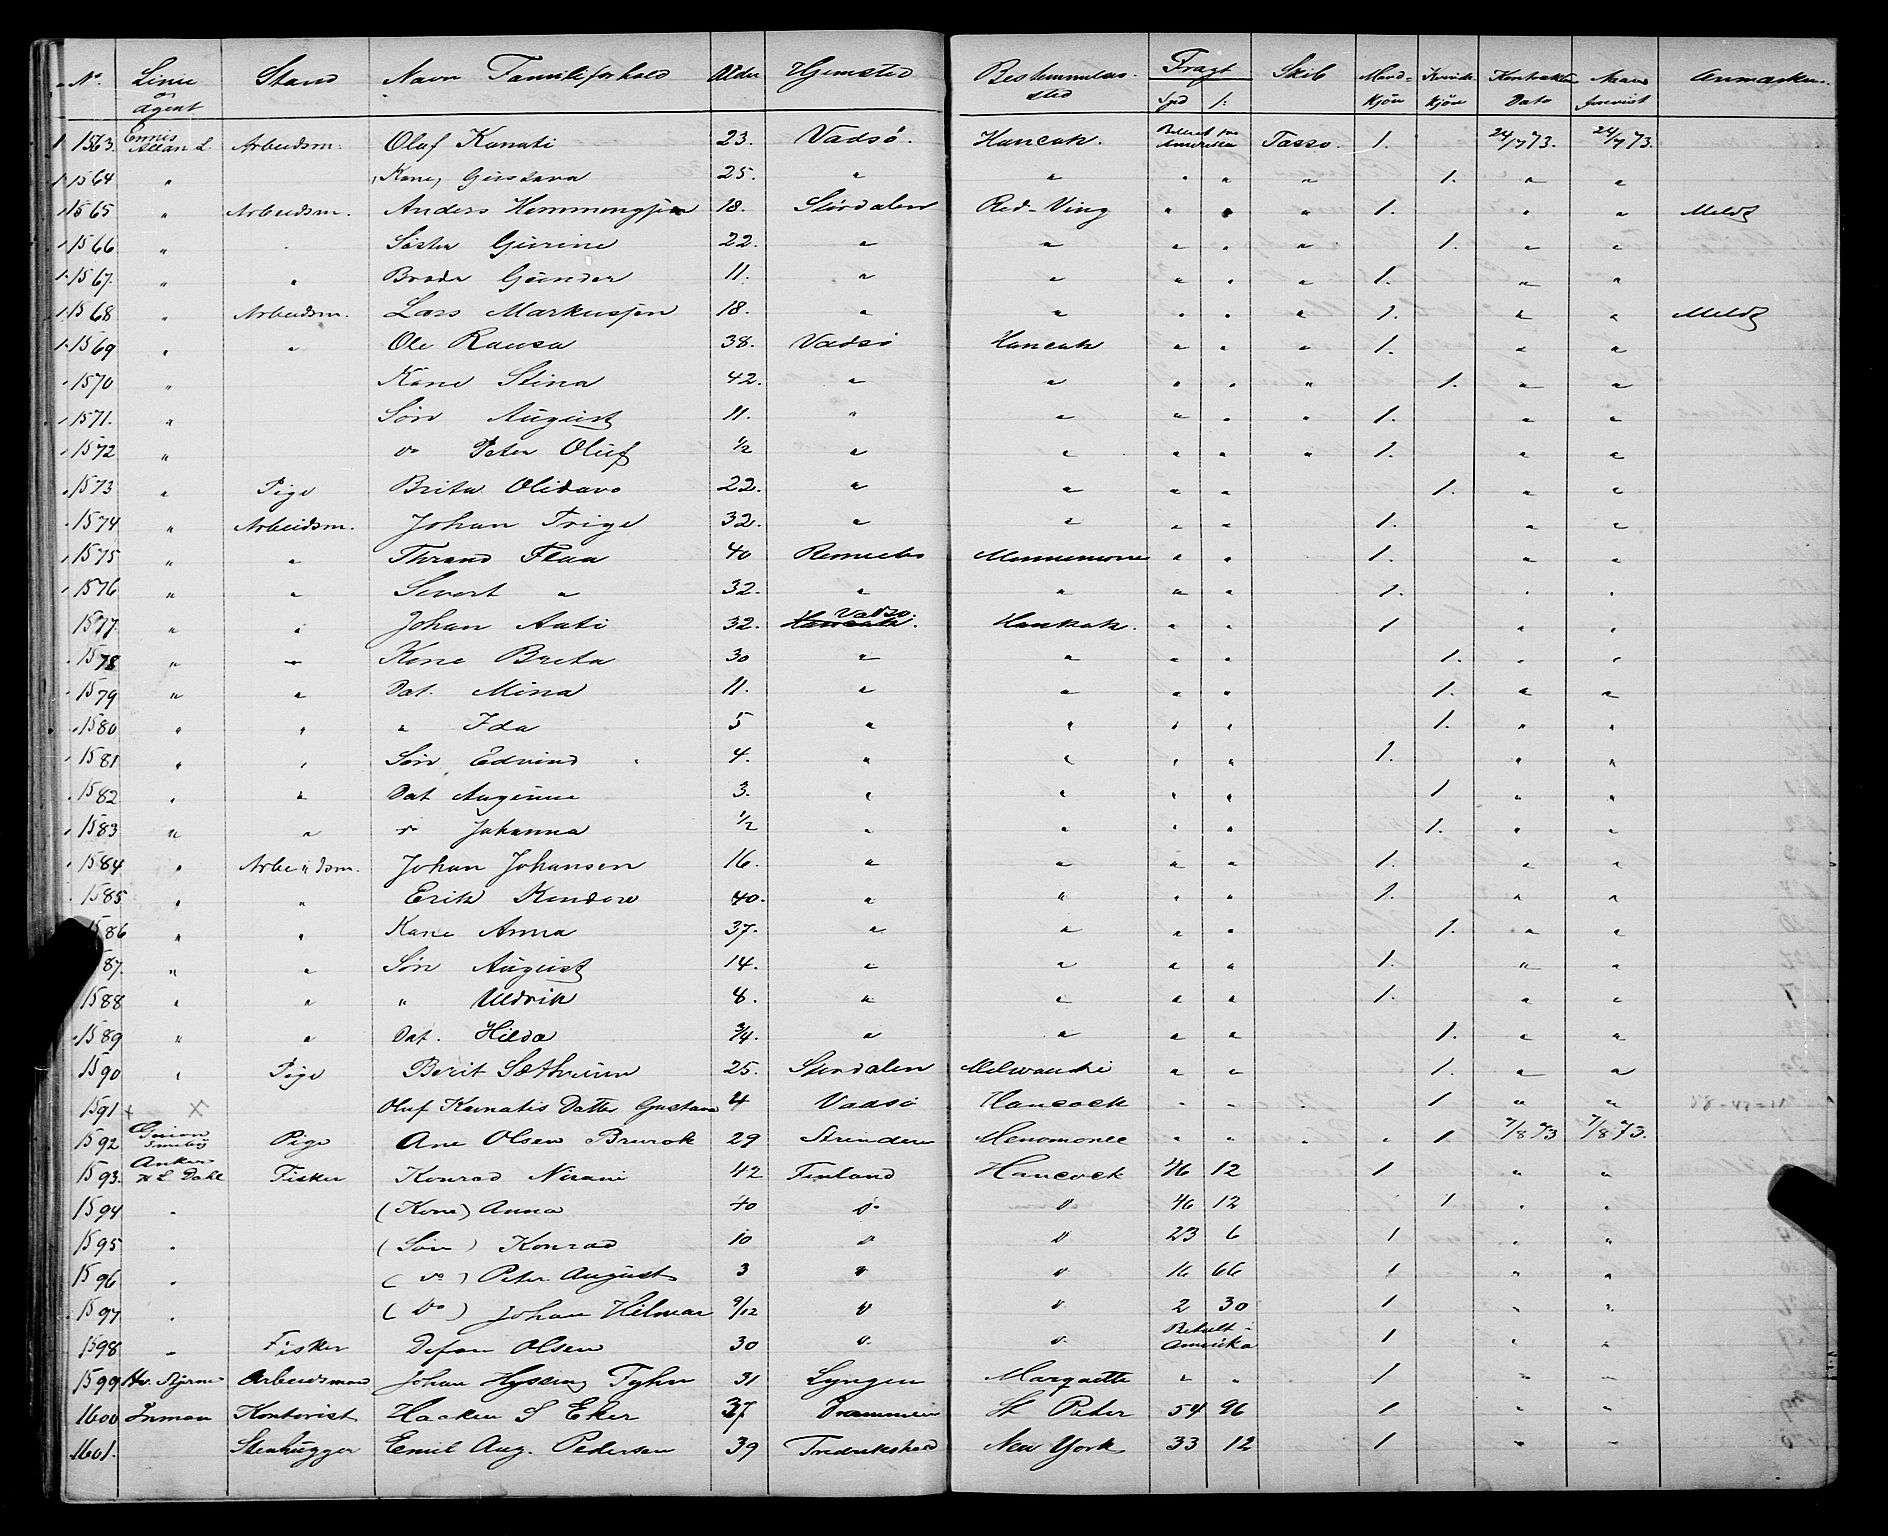 No. Linie og Agent Stand Navn Familieforhold Alder Hjemsted Bestemmelses-sted Fragt Spd /: Skib Mand-kjøn Kvinde-kjøn Kontraktens Dato Anmærkn.
1 1563. Allan L. Arbeidsm. Oluf Kanati 23. Vadsø. Hancak. Billet fra Amerika Tasso. 1. 24/7 73. 24/7 73.
1 1564 " (Kone) Gustava 25. " " " " " 1. " "
1 1565 " Arbeidsm. Anders Hemmingsen 18. Stördalen Red-Ving " " " 1. " " Meldt
1 1566 " Søster Gurine 22. " " " " " 1. " "
1 1567. " " Broder Gunder 11. " " " " " 1. " "
1 1568 " Arbeidsm. Lars Markussen 18. " " " " " 1. " " Meldt
1 1569 " " Ole Rausa 38. Vadsø Hancak " " " 1. " "
1570 " Kone Stina 42. " " " " " 1. " "
1571. " Søn August 11. " " " " " 1. " "
1572 " do Peter Oluf 1/2 " " " " " 1. " "
1573 " Pige Brita Olidavo 22. " " " " 1. " "
1574 " Arbeidsm. Johan Trige 32. " " " " 1. " "
1575 " " Thrand Flaa 40 Mennemone " " 1. " "
1576 " " Severt " 32. " " " " 1. " "
1577. " " Johan Aati 32. Vadsø. Hankak. " " 1 " "
1578 " " Kone Breta 30 " " " " 1. " "
1579 " " Dat. Mina 11. " " " " 1. " "
1580 " " " Ida 5 " " " " 1. " "
1581 " " Søn Edvind 4. " " " " 1. " "
1582 " " Dat Augusta 3. " " " " 1 " "
1583 " " do Johanna 1/2 " " " " 1. " "
1584 " Arbeidsm. Johan Johansen 16. " " " " 1. " "
1585 " " Erik Kendore 40. " " " " 1. " "
86 " " Kone Anna 37. " " " " 1. " "
87. " " Søn August 14. " " " " 1. " "
1588 " " " Uldrik 8. " " " " 1. " "
1589 " " Dat. Hilda 3/4. " " " " 1. " "
1590 " Pige Berit Sæthrum 25. Stördalen Milwauki " " 1. " "
1591 + X Oluf Kanatis Datter Gustava 4 Vadsø Hancock " " 1 " "
1592 Pige Ane Olsen Brurok 29 Strinden Menomonee " " " " 1 7/8 73 7/8 73.
1593. Anker H L Dahl Fisker Konrad Nirani 42 Finland Hancock 46 12 1 " "
1594 " (Kone) Anna 40 do do 46 12 1 " "
1595 " (Søn) Konrad 10 do do 23 6 1 " "
1596 " (do) Peter August 3 do do 16 66 1 " "
1597 " (Do) Johan Hilmar 9/12 do do 2 30 1 " "
1598 " Fisker Olsen 30 do do Betalt i Amerika 1 " "
1599 Arbeidsmand Johan 31 Lyngen Marquette " " 1 " "
1600 Inman Kontorist Haaken S Eker 37 Drammen St Peter 54 96 1 " "
1601. Stenhugger Emil Aug. Pedersen 39 Fredrikshald New York 33 12 1 " "